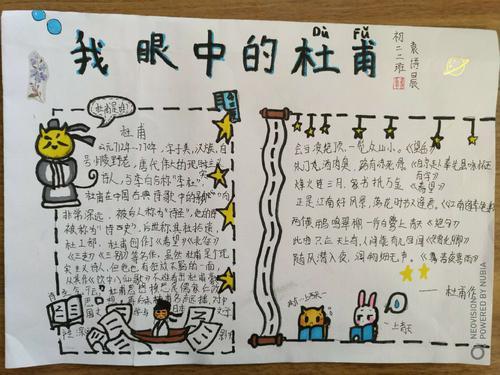 Dù Fǔ
我眼中的杜甫
初二二班
杜甫是谁?
杜甫
公元712年—770年,字子美,汉族,自
号少陵野老,唐代伟大的现实主义
诗人,与李白合称"李杜"。
杜甫在中国古典诗歌中的影响
非常深远,被后人称为"诗圣",他的诗
被称为"诗史"。后世称其杜拾遗、
杜工部,杜甫创作了《春望》《北征》
《三吏》《三别》等名作。虽然杜甫是个现
实主义诗人,但他也有狂放不羁的一面,
从其名作《饮中八仙歌》不难看出杜甫
会当凌绝顶,一览众山小。《望岳》
朱门酒肉臭,路有冻死骨。
烽火连三月,家书抵万金《春望》
正是江南好风景,落花时节又逢君。《江南逢李龟年》
两个黄鹂鸣翠柳,一行白鹭上青天《绝句》
此曲只应天上有,人间能有几回闻《赠花卿》
随风潜入夜,润物细无声。《春夜喜雨》
——杜甫作
一上青天
NEOVISION
POWERED BY NUBIA